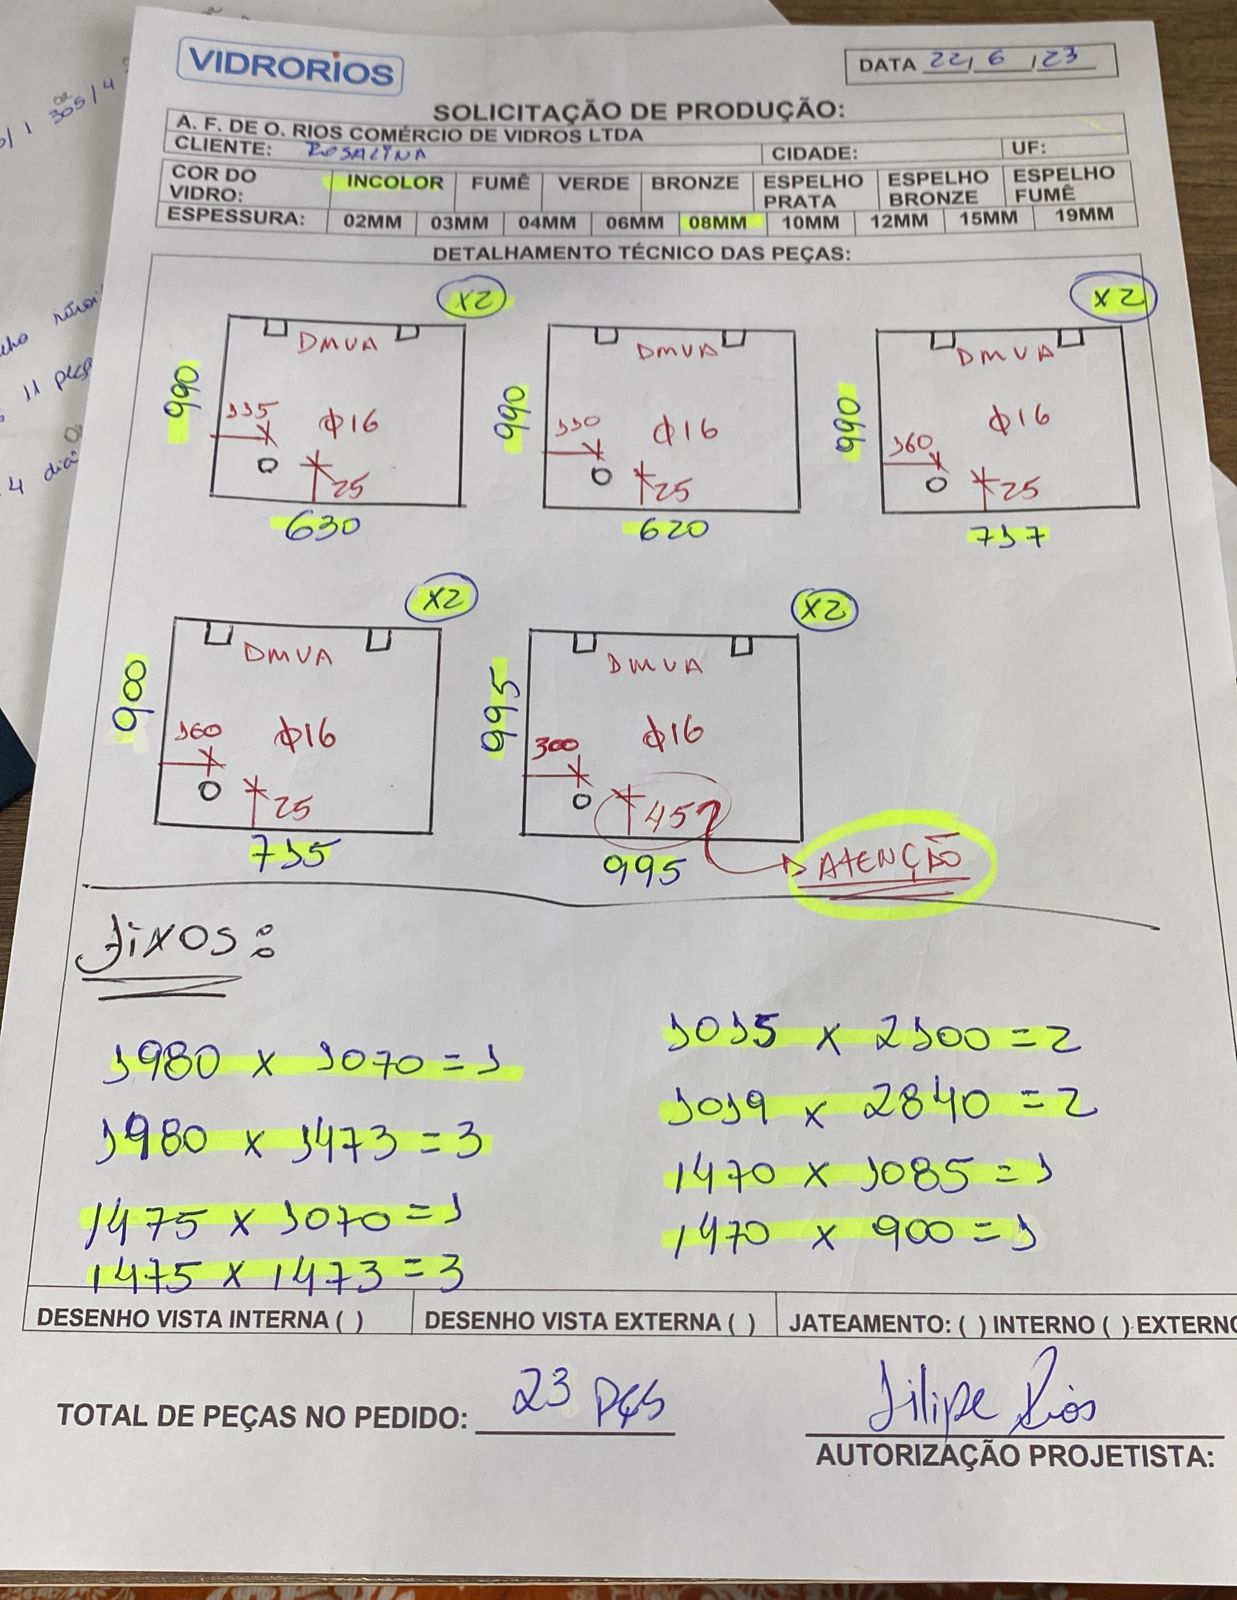 VIDRORIOS
DATA 22/6/23
SOLICITAÇÃO DE PRODUÇÃO:
A. F. DE O. RIOS COMÉRCIO DE VIDROS LTDA
CLIENTE: ROSALINA CIDADE: UF:
COR DO VIDRO: INCOLOR FUMÊ VERDE BRONZE ESPELHO PRATA ESPELHO BRONZE ESPELHO FUMÊ
ESPESSURA: 02MM 03MM 04MM 06MM 08MM 10MM 12MM 15MM 19MM
DETALHAMENTO TÉCNICO DAS PEÇAS:
X2
DMVA
990
135
φ16
25
630
DMVA
990
130
φ16
25
620
X2
DMVA
990
160
φ16
25
717
X2
DMVA
900
160
φ16
25
715
X2
DMVA
995
300
φ16
457
995
ATENÇÃO
FIXOS:
1980 X 1070 = 1
1980 X 1473 = 3
1475 X 1070 = 1
1475 X 1473 = 3
1015 X 2100 = 2
1019 X 2840 = 2
1470 X 1085 = 1
1470 X 900 = 1
DESENHO VISTA INTERNA ( ) DESENHO VISTA EXTERNA ( ) JATEAMENTO: ( ) INTERNO ( ) EXTERNO
TOTAL DE PEÇAS NO PEDIDO: 23 PÇS
Filipe Rios
AUTORIZAÇÃO PROJETISTA: